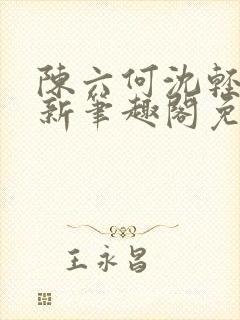 陳六何沈輕
新筆趣閣免
王永昌